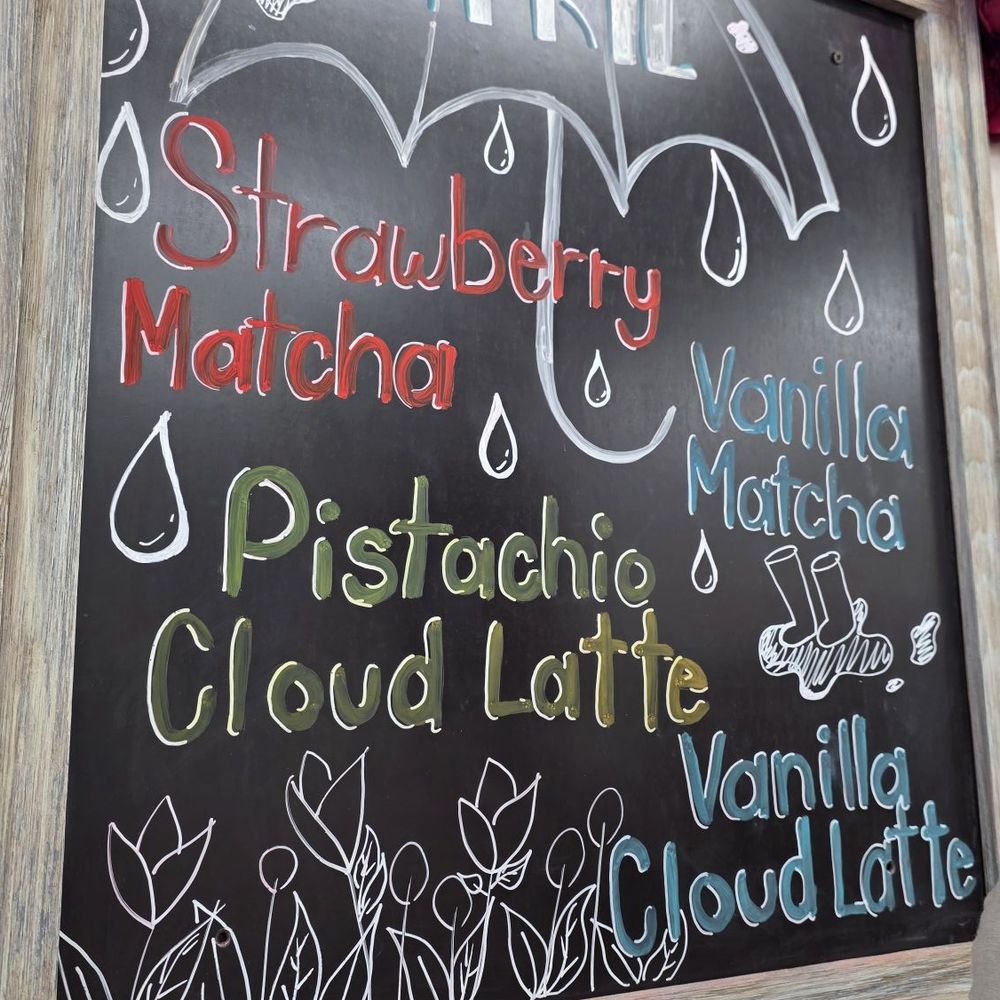 Strawberry
Matcha
Vanilla
Matcha
Pistachio
Cloud Latte
Vanilla
Cloud Latte